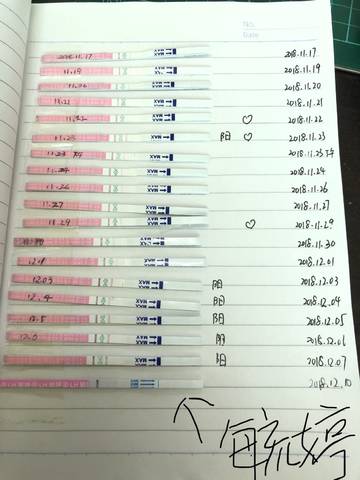 No.
Date
2018.11.17 MAX 2018.11.17
11.19 MAX 2018.11.19
11.20 MAX 2018.11.20
11.21 MAX 2018.11.21
11.22 MAX ♡ 2018.11.22
11.23 MAX 阳 ♡ 2018.11.23
11.23 下午 MAX 2018.11.23 下午
11.24 MAX 2018.11.24
11.26 MAX 2018.11.26
11.27 MAX 2018.11.27
11.29 MAX ♡ 2018.11.29
MAX 2018.11.30
12.1 MAX 2018.12.01
12.03 MAX 阳 2018.12.03
12.4 MAX 阳 2018.12.04
12.5 MAX 阳 2018.12.05
MAX 阳 2018.12.06
MAX 阳 2018.12.07
2018.12.10